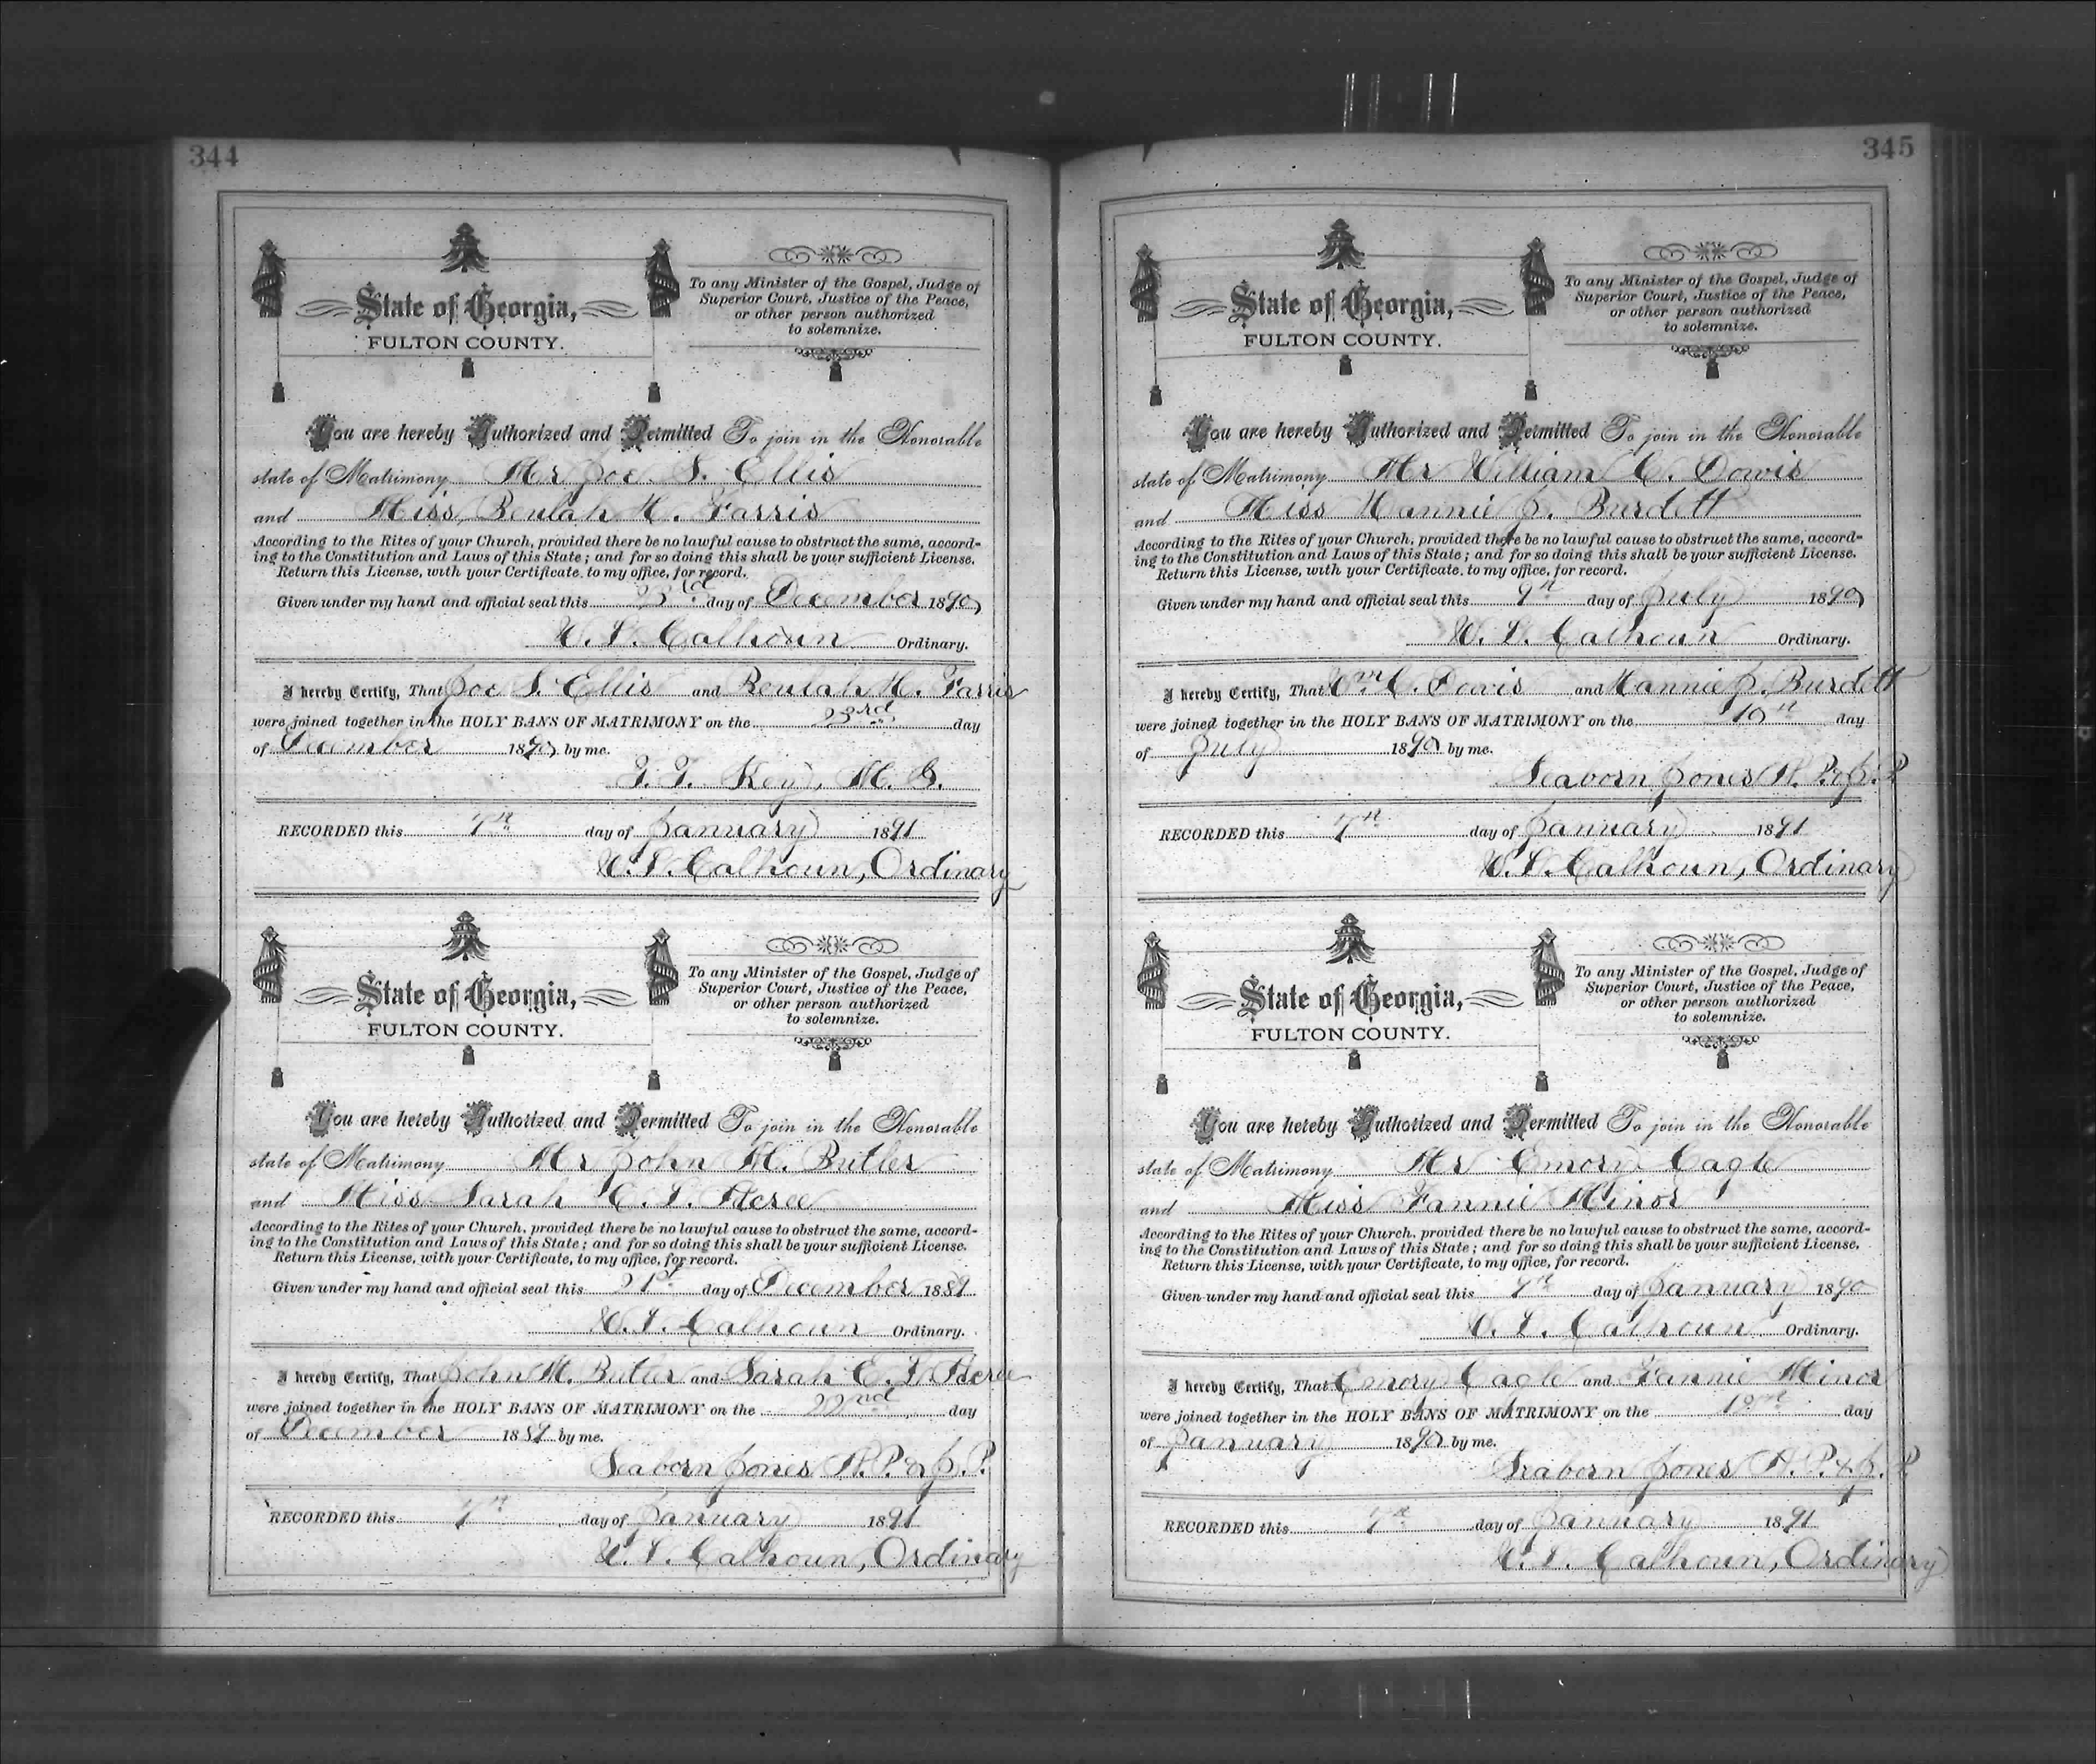 344
State of Georgia,
FULTON COUNTY.
To any Minister of the Gospel, Judge of
Superior Court, Justice of the Peace,
or other person authorized
to solemnize.
You are hereby Authorized and Permitted To join in the Honorable
state of Matrimony Mr Joe. S. Ellis
and Miss Beulah M. Farris
According to the Rites of your Church, provided there be no lawful cause to obstruct the same, accord-
ing to the Constitution and Laws of this State; and for so doing this shall be your sufficient License.
Return this License, with your Certificate, to my office, for record.
Given under my hand and official seal this 23rd day of December 1890
W. L. Calhoun Ordinary.
I hereby Certify, That Joe S. Ellis and Beulah M. Farris
were joined together in the HOLY BANS OF MATRIMONY on the 23rd day
of December 1890 by me.
Key, M. G.
RECORDED this 7th day of January 1891
W. L. Calhoun, Ordinary
State of Georgia,
FULTON COUNTY.
To any Minister of the Gospel, Judge of
Superior Court, Justice of the Peace,
or other person authorized
to solemnize.
You are hereby Authorized and Permitted To join in the Honorable
state of Matrimony Mr John M. Butler
and Miss Sarah E. L. Acree
According to the Rites of your Church, provided there be no lawful cause to obstruct the same, accord-
ing to the Constitution and Laws of this State; and for so doing this shall be your sufficient License.
Return this License, with your Certificate, to my office, for record.
Given under my hand and official seal this 21st day of December 1889
W. L. Calhoun Ordinary.
I hereby Certify, That John M. Butler and Sarah E. L. Acree
were joined together in the HOLY BANS OF MATRIMONY on the 22nd day
of December 1889 by me.
Seaborn Jones N. P. & J. P.
RECORDED this 7th day of January 1891
W. L. Calhoun, Ordinary
345
State of Georgia,
FULTON COUNTY.
To any Minister of the Gospel, Judge of
Superior Court, Justice of the Peace,
or other person authorized
to solemnize.
You are hereby Authorized and Permitted To join in the Honorable
state of Matrimony Mr William C. Dowis
and Miss Nannie J. Burdett
According to the Rites of your Church, provided there be no lawful cause to obstruct the same, accord-
ing to the Constitution and Laws of this State; and for so doing this shall be your sufficient License.
Return this License, with your Certificate, to my office, for record.
Given under my hand and official seal this 9th day of July 1890
W. L. Calhoun Ordinary.
I hereby Certify, That Wm C. Dowis and Nannie J. Burdett
were joined together in the HOLY BANS OF MATRIMONY on the 10th day
of July 1890 by me.
Seaborn Jones N. P. & J. P.
RECORDED this 7th day of January 1891
W. L. Calhoun, Ordinary
State of Georgia,
FULTON COUNTY.
To any Minister of the Gospel, Judge of
Superior Court, Justice of the Peace,
or other person authorized
to solemnize.
You are hereby Authorized and Permitted To join in the Honorable
state of Matrimony Mr Emory Cagle
and Miss Fannie Minor
According to the Rites of your Church, provided there be no lawful cause to obstruct the same, accord-
ing to the Constitution and Laws of this State; and for so doing this shall be your sufficient License.
Return this License, with your Certificate, to my office, for record.
Given under my hand and official seal this day of January 1890
W. L. Calhoun Ordinary.
I hereby Certify, That Emory Cagle and Fannie Minor
were joined together in the HOLY BANS OF MATRIMONY on the day
of January 1890 by me.
Seaborn Jones N. P. & J. P.
RECORDED this 7th day of January 1891
W. L. Calhoun, Ordinary